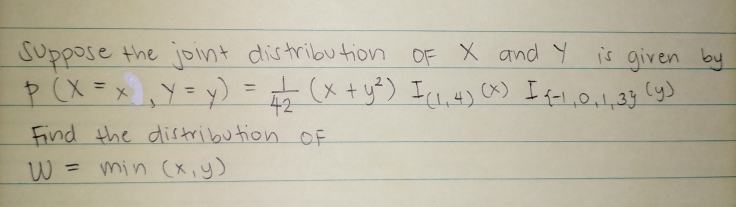 Suppose the joint distribution OF X and Y is given by
P (X = x , Y = y) = 1/42 (x + y²) I(1,4) (x) I{-1,0,1,3} (y)
Find the distribution OF
W = min (x,y)